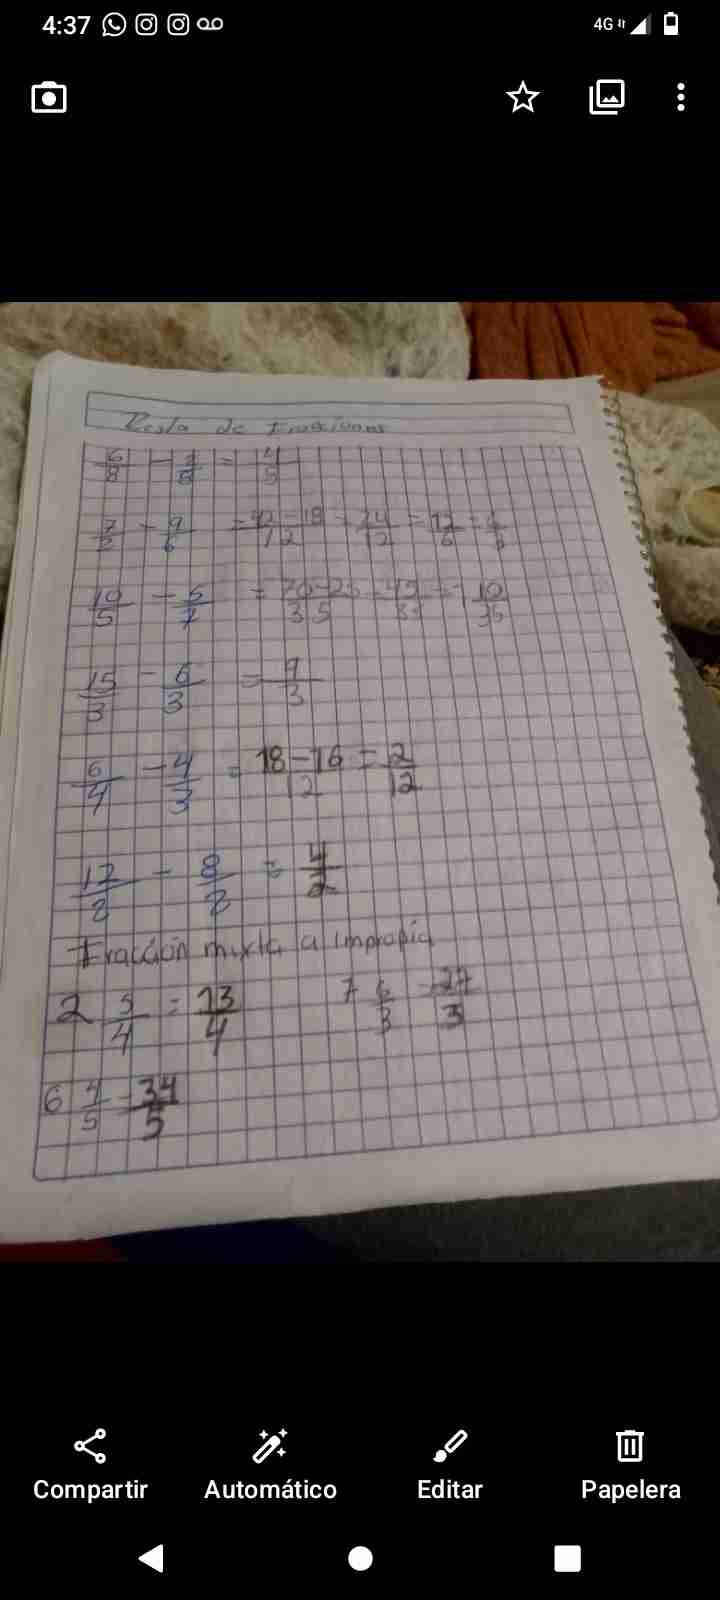 4:37 4G
Resta de Fracciones
6/8 - 2/8 = 4/8
7/2 - 9/6 = 42-18/12 = 24/12 = 12/6
10/5 - 5/7 = 70-25/35 = 45/35 = 10/35
15/3 - 6/3 = 9/3
6/4 - 4/3 = 18-16/12 = 2/12
12/2 - 8/2 = 4/2
Fracción mixta a impropia
2 5/4 = 13/4 7 6/3 = 27/3
6 4/5 = 34/5
Compartir Automático Editar Papelera